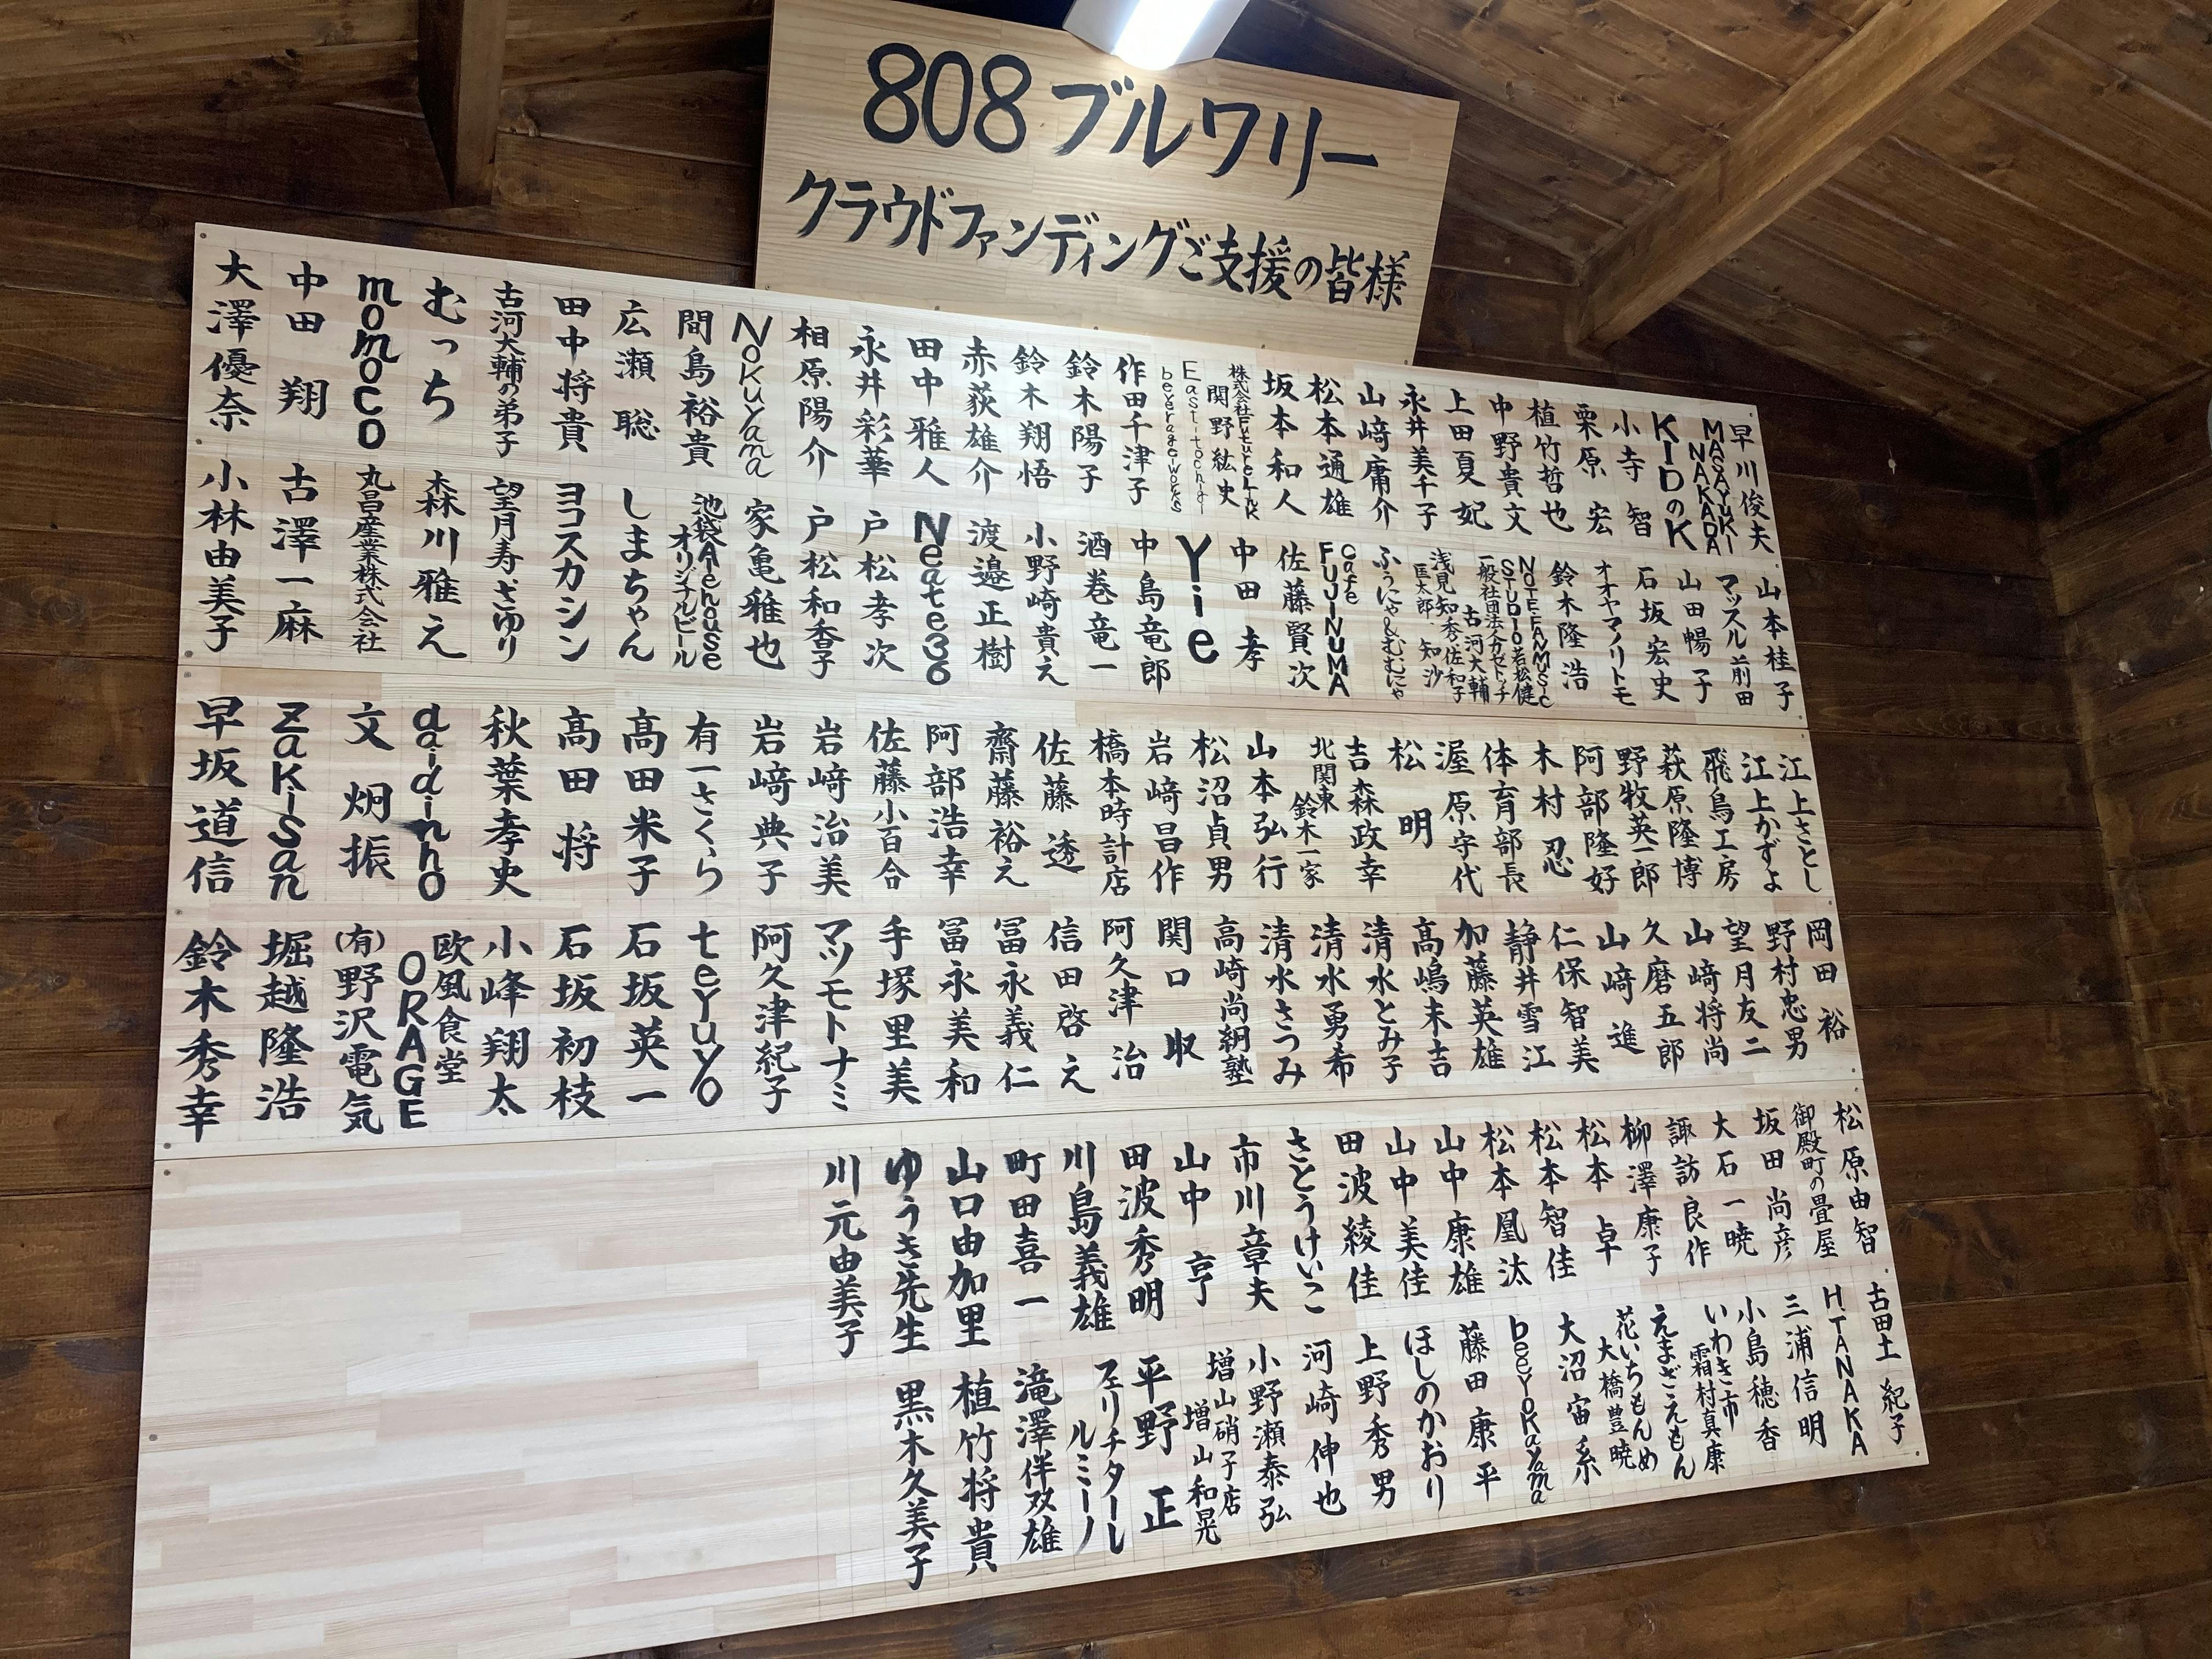 808ブルワリー
クラウドファンディングご支援の皆様
早川俊夫
MASAYUKI NAKADA
KIDのK
小寺智
栗原宏
植竹哲也
中野貴文
上田夏妃
永井美千子
山﨑庸介
松本通雄
坂本和人
株式会社FutureLink
関野紘史
East-tochigi
beverage-works
作田千津子
鈴木陽子
鈴木翔悟
赤荻雄介
田中雅人
永井彩華
相原陽介
Nokuyama
間島裕貴
広瀬聡
田中将貴
古河大輔の弟子
むっち
momoco
中田翔
大澤優奈
山本桂子
マッスル前田
山田暢子
石坂宏史
オオヤマノリトモ
鈴木隆浩
NOTE-FANMUSIC
STUDIO若松健
一般社団法人カゼトツチ
古河大輔
浅見知秀佐和子
匡太郎 知沙
ふぅにゃ&むむにゃ
cafe FUJINUMA
佐藤賢次
中田孝
Yie
中島竜郎
酒巻竜一
小野崎貴え
渡邉正樹
Neate36
戸松孝次
戸松和香子
家亀雅也
池袋Alehouse
オリジナルビール
しまちゃん
ヨコスカシン
望月寿さゆり
森川雅え
丸昌産業株式会社
古澤一麻
小林由美子
江上さとし
江上かずよ
飛鳥工房
萩原隆博
野牧英一郎
阿部隆好
木村忍
体育部長
渥原守代
松明
吉森政幸
北関東
鈴木一家
山本弘行
松沼貞男
岩﨑昌作
橋本時計店
佐藤透
齋藤裕え
阿部浩幸
佐藤小百合
岩﨑治美
岩﨑典子
有一さくら
髙田米子
高田将
秋葉孝史
daidinho
文炯振
zakisan
早坂道信
岡田裕
野村忠男
望月友二
山﨑将尚
久磨五郎
山﨑進
仁保智美
静井雪江
加藤英雄
高嶋末吉
清水とみ子
清水勇希
清水さつみ
高崎尚絅塾
関口取
阿久津治
信田啓え
冨永義仁
冨永美和
手塚里美
マツモトナミ
阿久津紀子
teyuyo
石坂英一
石坂初枝
小峰翔太
欧風食堂
ORAGE
(有)野沢電気
堀越隆浩
鈴木秀幸
松原由智
御殿町の畳屋
坂田尚彦
大石一暁
諏訪良作
柳澤康子
松本卓
松本智佳
松本凰汰
山中康雄
山中美佳
田波綾佳
さとうけいこ
市川章夫
山中亨
田波秀明
川島義雄
町田喜一
山口由加里
ゆうき先生
川元由美子
古田土紀子
H.TANAKA
三浦信明
小島穂香
いわき市
霜村真康
えまざえもん
花いちもんめ
大橋豊暁
大沼宙系
beeyokayama
藤田康平
ほしのかおり
上野秀男
河崎伸也
小野瀬泰弘
増山硝子店
増山和晃
平野正
フェリチタール
ルミーノ
滝澤伴双雄
植竹将貴
黒木久美子